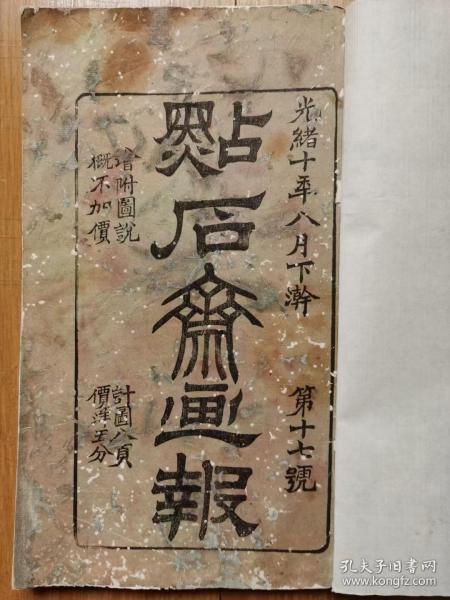 光緒十年八月下澣
第十七號
點石齋画報
增附圖說
概不加價
計圖八頁
價洋五分
孔夫子旧书网
www.kongfz.com